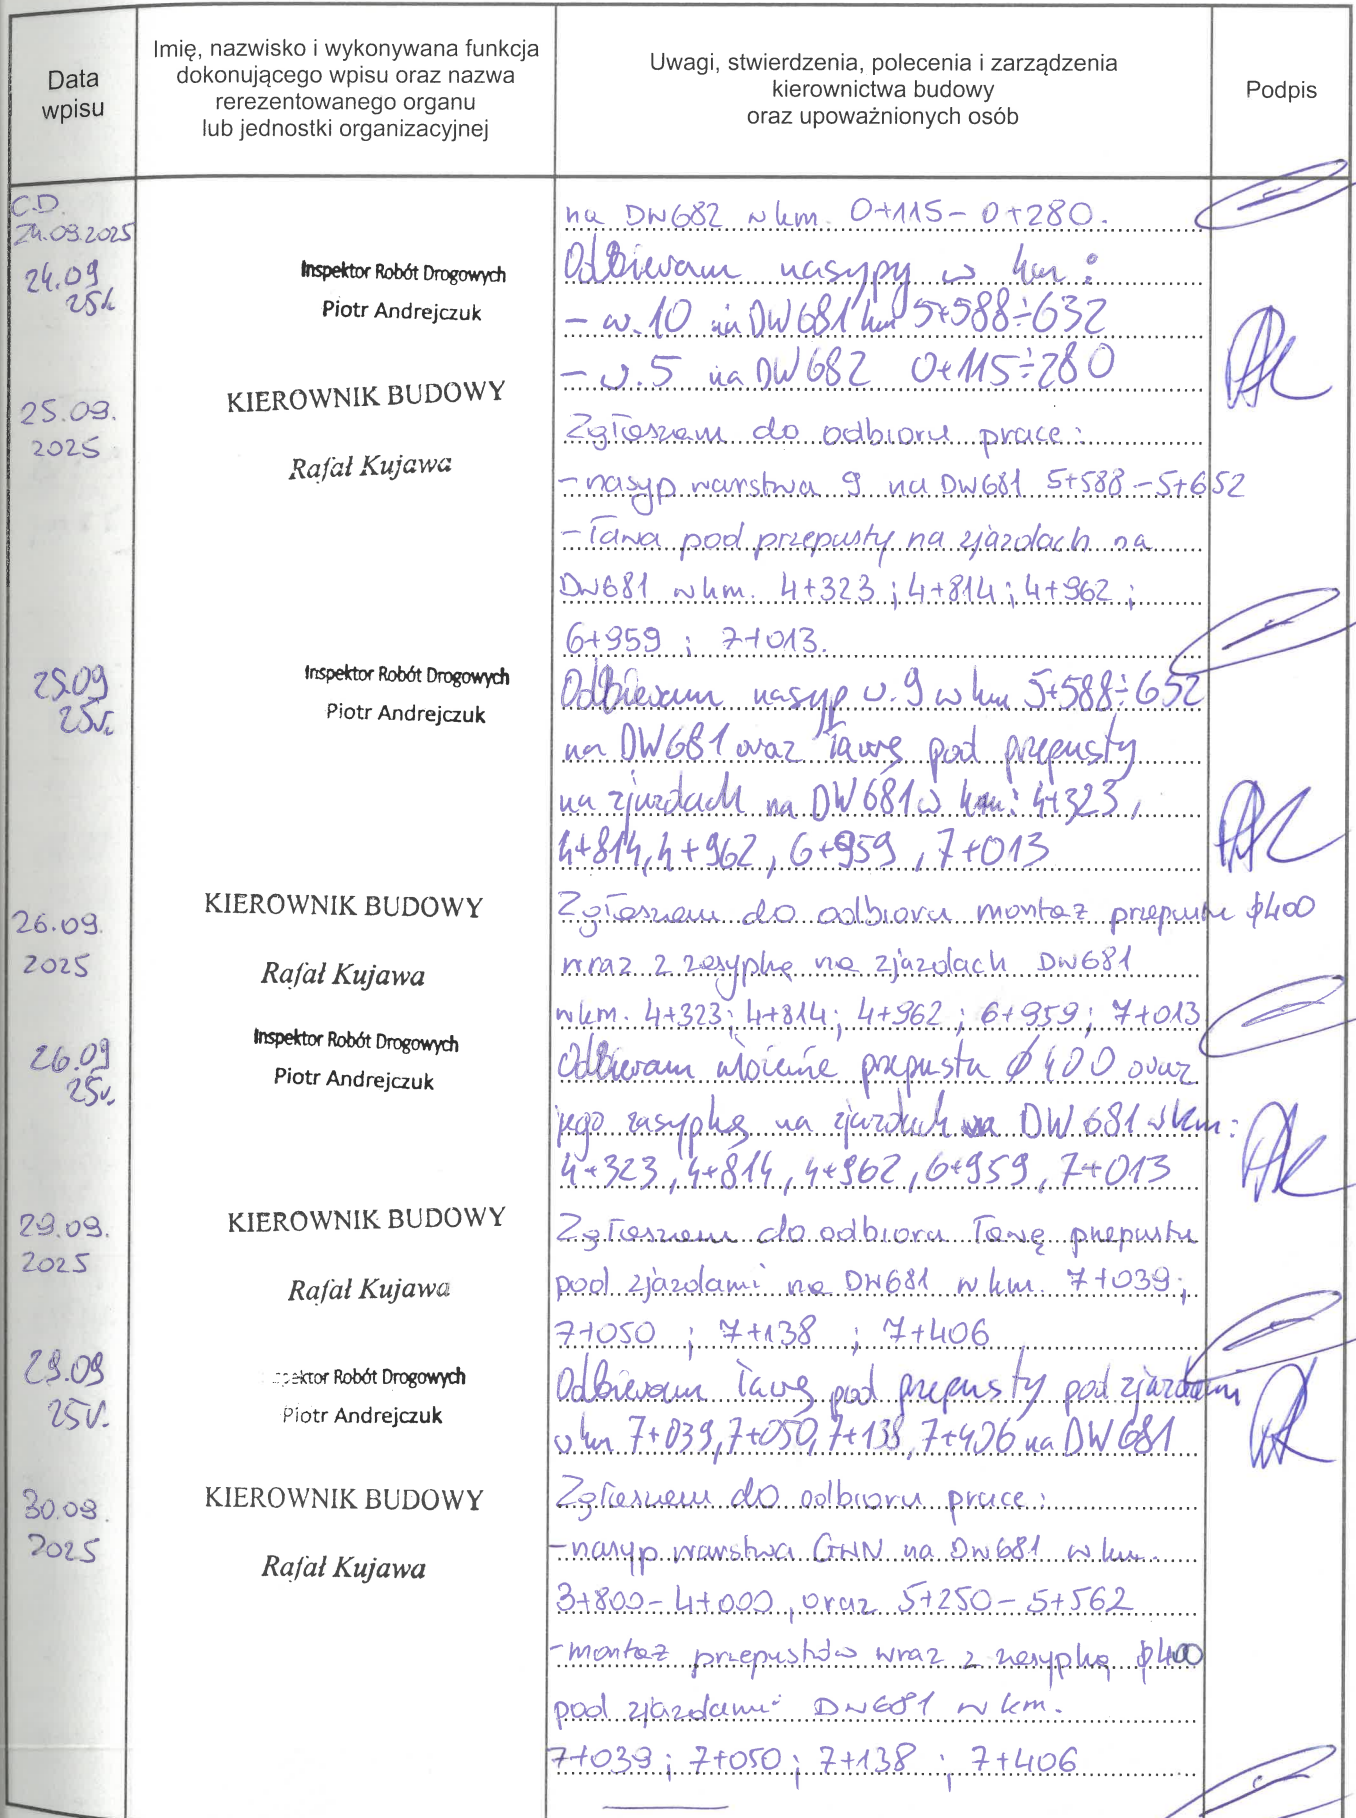 Data
wpisu
Imię, nazwisko i wykonywana funkcja
dokonującego wpisu oraz nazwa
rerezentowanego organu
lub jednostki organizacyjnej
Uwagi, stwierdzenia, polecenia i zarządzenia
kierownictwa budowy
oraz upoważnionych osób
Podpis
C.D.
24.09.2025
na DW682 w km. 0+115 - 0+280.
24.09
25r.
Inspektor Robót Drogowych
Piotr Andrejczuk
Odbieram nasypy w km:
- w. 10 na DW681 km 5+588÷632
- w. 5 na DW682 0+115÷280
25.09.
2025
KIEROWNIK BUDOWY
Rafał Kujawa
Zgłaszam do odbioru prace:
- nasyp warstwa 9 na DW681 5+588 - 5+652
- ława pod przepusty na zjazdach na
DW681 w km. 4+323 ; 4+814 ; 4+962 ;
6+959 ; 7+013.
25.09
25r.
Inspektor Robót Drogowych
Piotr Andrejczuk
Odbieram nasyp w. 9 w km 5+588÷652
na DW681 oraz ławę pod przepusty
na zjazdach na DW681 w km: 4+323,
4+814, 4+962, 6+959, 7+013
26.09.
2025
KIEROWNIK BUDOWY
Rafał Kujawa
Zgłaszam do odbioru montaż przepustu ϕ400
wraz z zasypką na zjazdach DW681
w km. 4+323; 4+814; 4+962 ; 6+959; 7+013
26.09
25r.
Inspektor Robót Drogowych
Piotr Andrejczuk
Odbieram ułożenie przepustu ϕ400 oraz
jego zasypkę na zjazdach na DW681 w km:
4+323, 4+814, 4+962, 6+959, 7+013
29.09.
2025
KIEROWNIK BUDOWY
Rafał Kujawa
Zgłaszam do odbioru ławę przepustu
pod zjazdami na DW681 w km. 7+039;
7+050 ; 7+138 ; 7+406
29.09
25r.
Robót Drogowych
Piotr Andrejczuk
Odbieram ławę pod przepusty pod zjazdami
w km 7+039, 7+050, 7+138, 7+406 na DW681
30.09.
2025
KIEROWNIK BUDOWY
Rafał Kujawa
Zgłaszam do odbioru prace:
- nasyp warstwa GWN na DW681 w km.
3+800 - 4+000, oraz 5+250 - 5+562
- montaż przepustów wraz z zasypką ϕ400
pod zjazdami DW681 w km.
7+039 ; 7+050 ; 7+138 ; 7+406